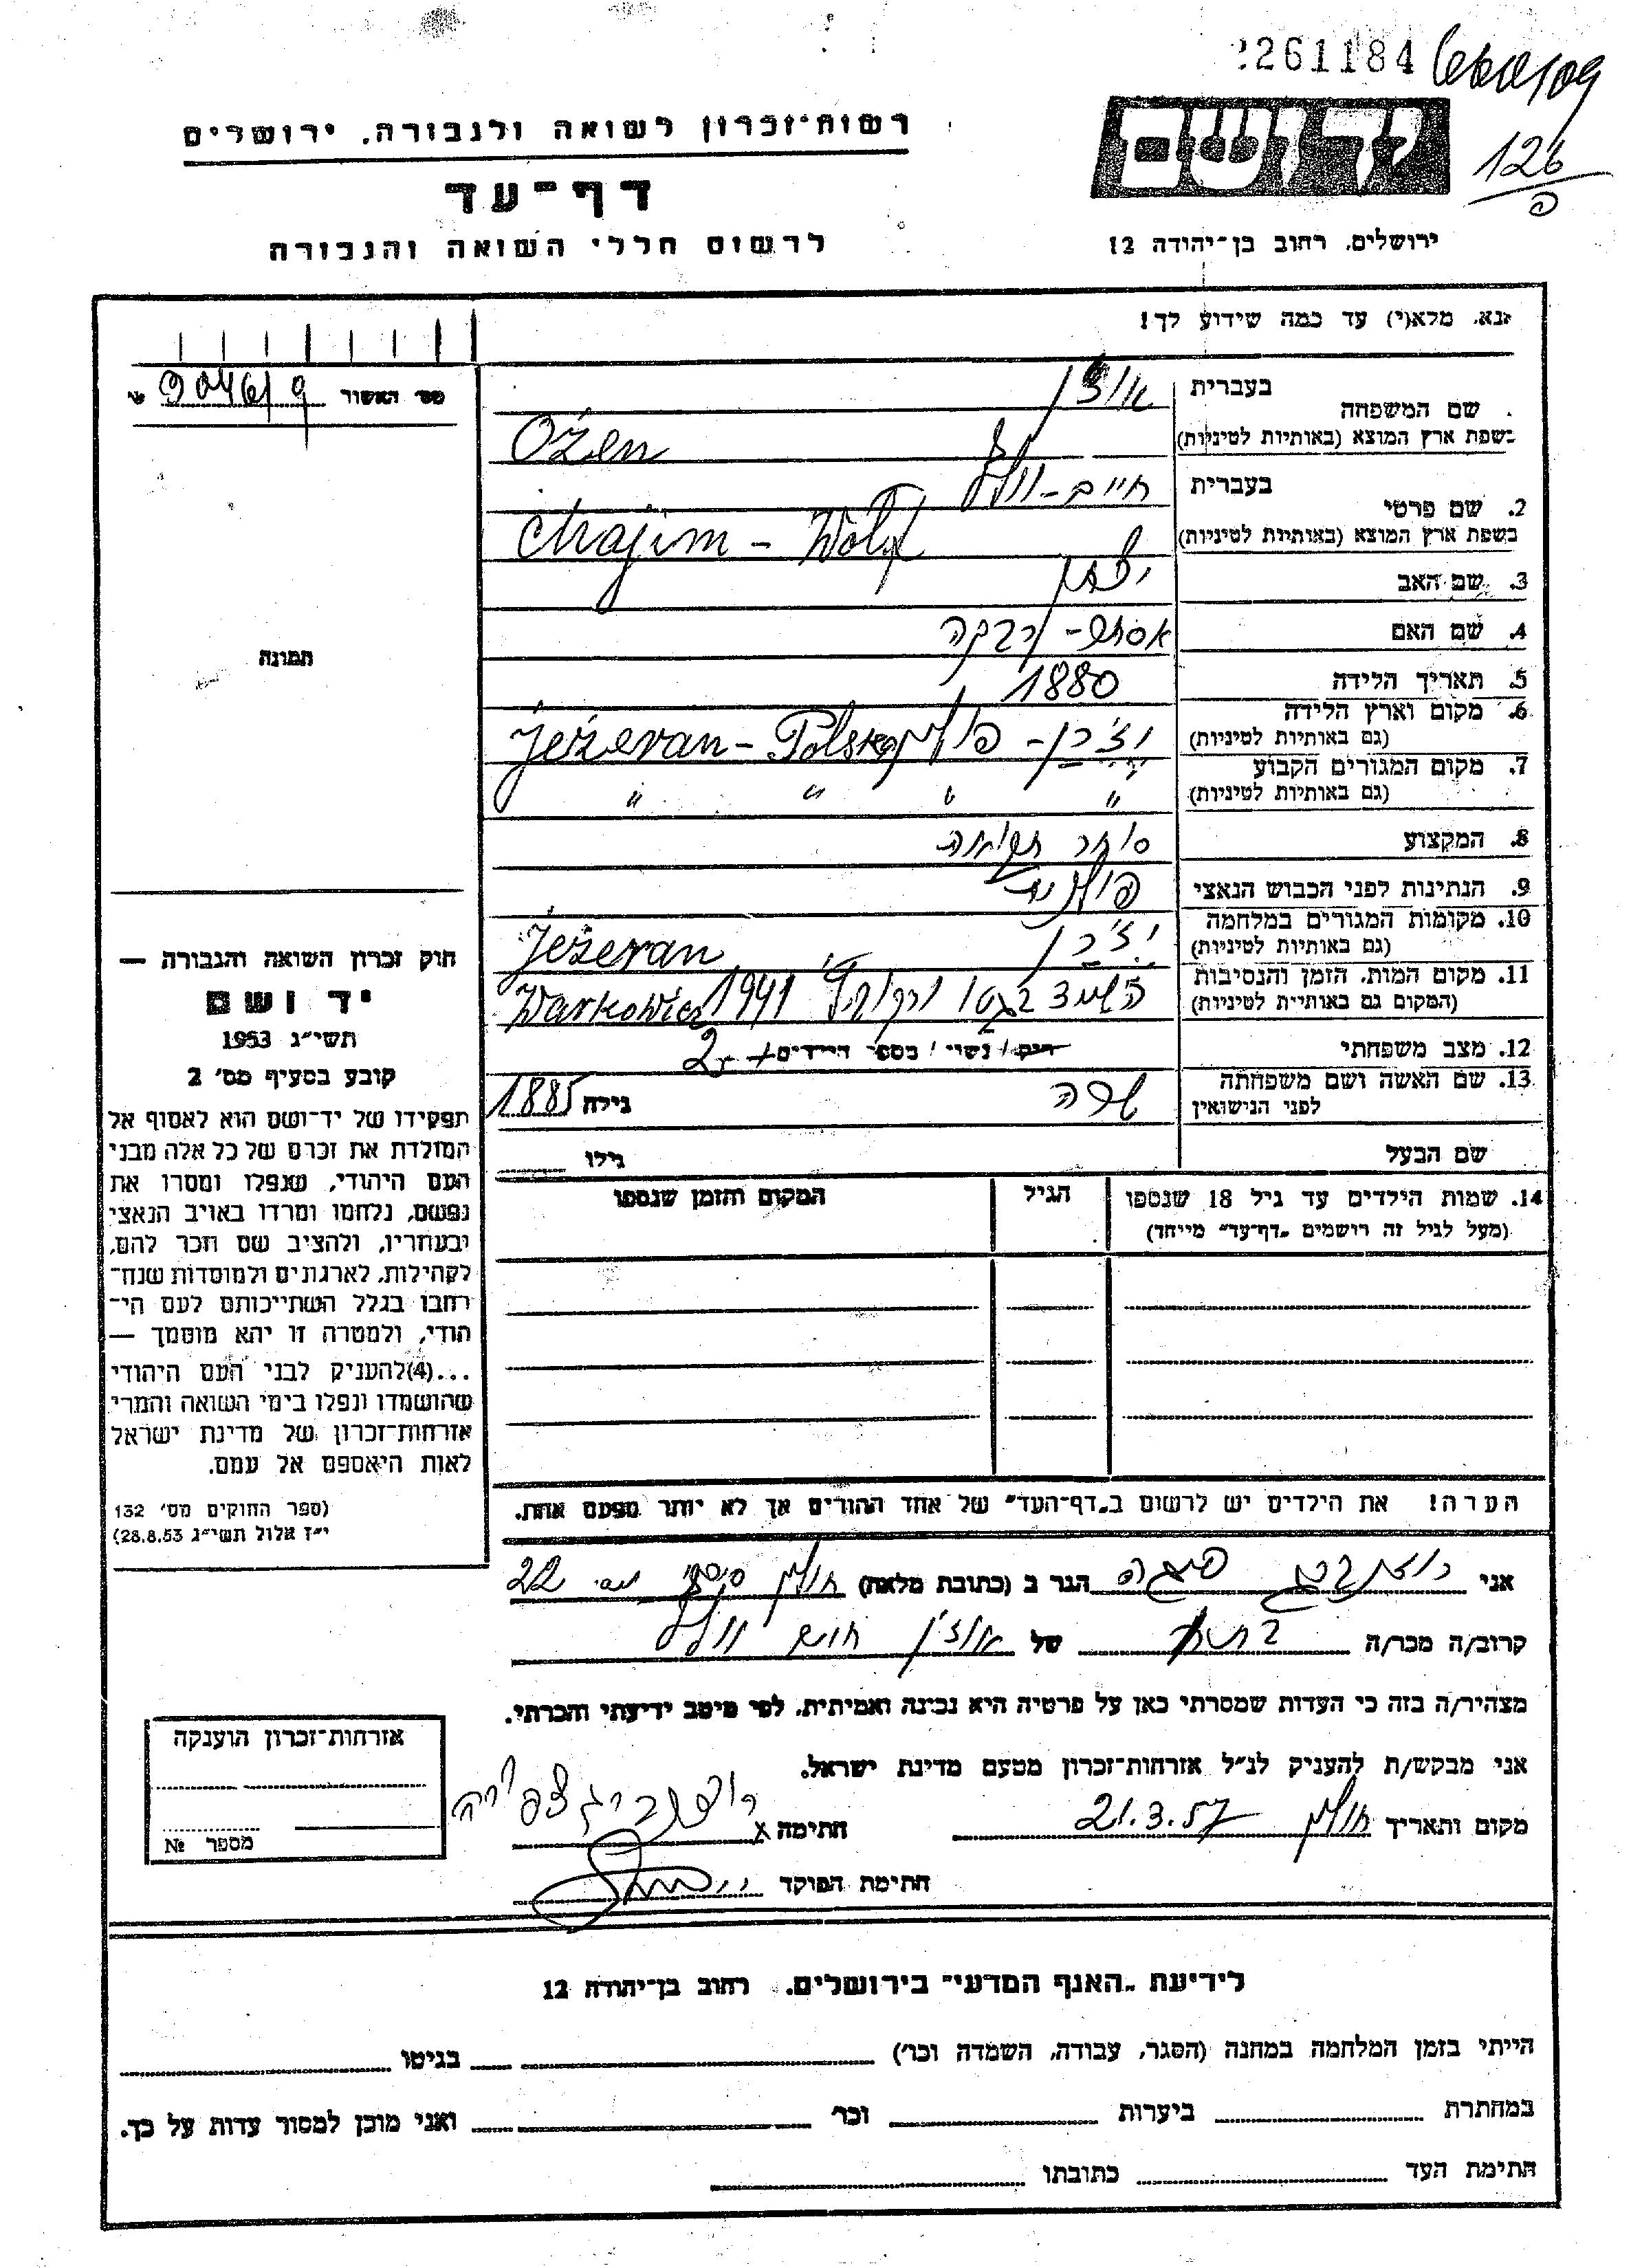 261184
רשות־זכרון לשואה ולגבורה, ירושלים
דף־עד
לרשום חללי השואה והגבורה
יד ושם
126
ירושלים, רחוב בן־יהודה 12
נא, מלא(י) עד כמה שידוע לך!
מס׳ האשור
שם המשפחה בעברית אוז׳ן
בשפת ארץ המוצא (באותיות לטיניות) Ożen
2. שם פרטי בעברית חיים-וולף
בשפת ארץ המוצא (באותיות לטיניות) Chajim - Wolf
3. שם האב
4. שם האם אסתר-רבקה
5. תאריך הלידה 1880
6. מקום וארץ הלידה (גם באותיות לטיניות) יז׳רן - פולין Jeżeran - Polska
7. מקום המגורים הקבוע (גם באותיות לטיניות) " " " "
8. המקצוע סוחר תבואה
9. הנתינות לפני הכבוש הנאצי פולנית
10. מקומות המגורים במלחמה (גם באותיות לטיניות) יז׳רן Jeżeran
11. מקום המות, הזמן והנסיבות (המקום גם באותיות לטיניות) בגטו ורקוביץ 1941 Warkowicz
12. מצב משפחתי רווק / נשוי / מספר הילדים + 2
13. שם האשה ושם משפחתה לפני הנישואין שרה גילה 1885
שם הבעל גילו
14. שמות הילדים עד גיל 18 שנספו הגיל המקום והזמן שנספו
(מעל לגיל זה רושמים „דף־עד״ מייחד)
תמונה
חוק זכרון השואה והגבורה —
יד ושם
תשי״ג 1953
קובע בסעיף מס׳ 2
תפקידו של יד־ושם הוא לאסוף אל
המולדת את זכרם של כל אלה מבני
העם היהודי, שנפלו ומסרו את
נפשם, נלחמו ומרדו באויב הנאצי
ובעוזריו, ולהציב שם וזכר להם,
לקהילות, לארגונים ולמוסדות שנח־
רבו בגלל השתייכותם לעם הי־
הודי, ולמטרה זו יהא מוסמך —
...(4)להעניק לבני העם היהודי
שהושמדו ונפלו בימי השואה והמרי
אזרחות־זכרון של מדינת ישראל
לאות היאספם אל עמם.
(ספר החוקים מס׳ 132
י״ז אלול תשי״ג 28.8.53)
הערה! את הילדים יש לרשום ב„דף־העד״ של אחד ההורים אך לא יותר מפעם אחת.
אני רוזנברג הגר ב (כתובת מלאה) חולון 22
קרוב/ה מכר/ה של אוז׳ן חיים וולף
מצהיר/ה בזה כי העדות שמסרתי כאן על פרטיה היא נכונה ואמיתית, לפי מיטב ידיעתי והכרתי.
אני מבקש/ת להעניק לנ״ל אזרחות־זכרון מטעם מדינת ישראל.
מקום ותאריך חולון 21.3.57 חתימה x
חתימת הפוקד
אזרחות־זכרון הוענקה
מספר №
לידיעת „האגף המדעי״ בירושלים, רחוב בן־יהודה 12
הייתי בזמן המלחמה במחנה (הסגר, עבודה, השמדה וכו׳) בגיטו
במחתרת ביערות וכו׳ ואני מוכן למסור עדות על כך.
חתימת העד כתובתו